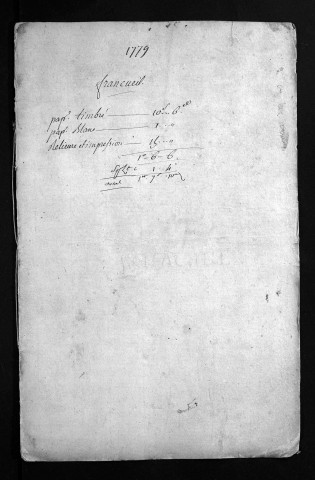 1779
francueil
pap.r timbré 10s 6d
pap.r blanc 1 "
Relieure et impression 15 "
1 6 6
1 4
1 7 10